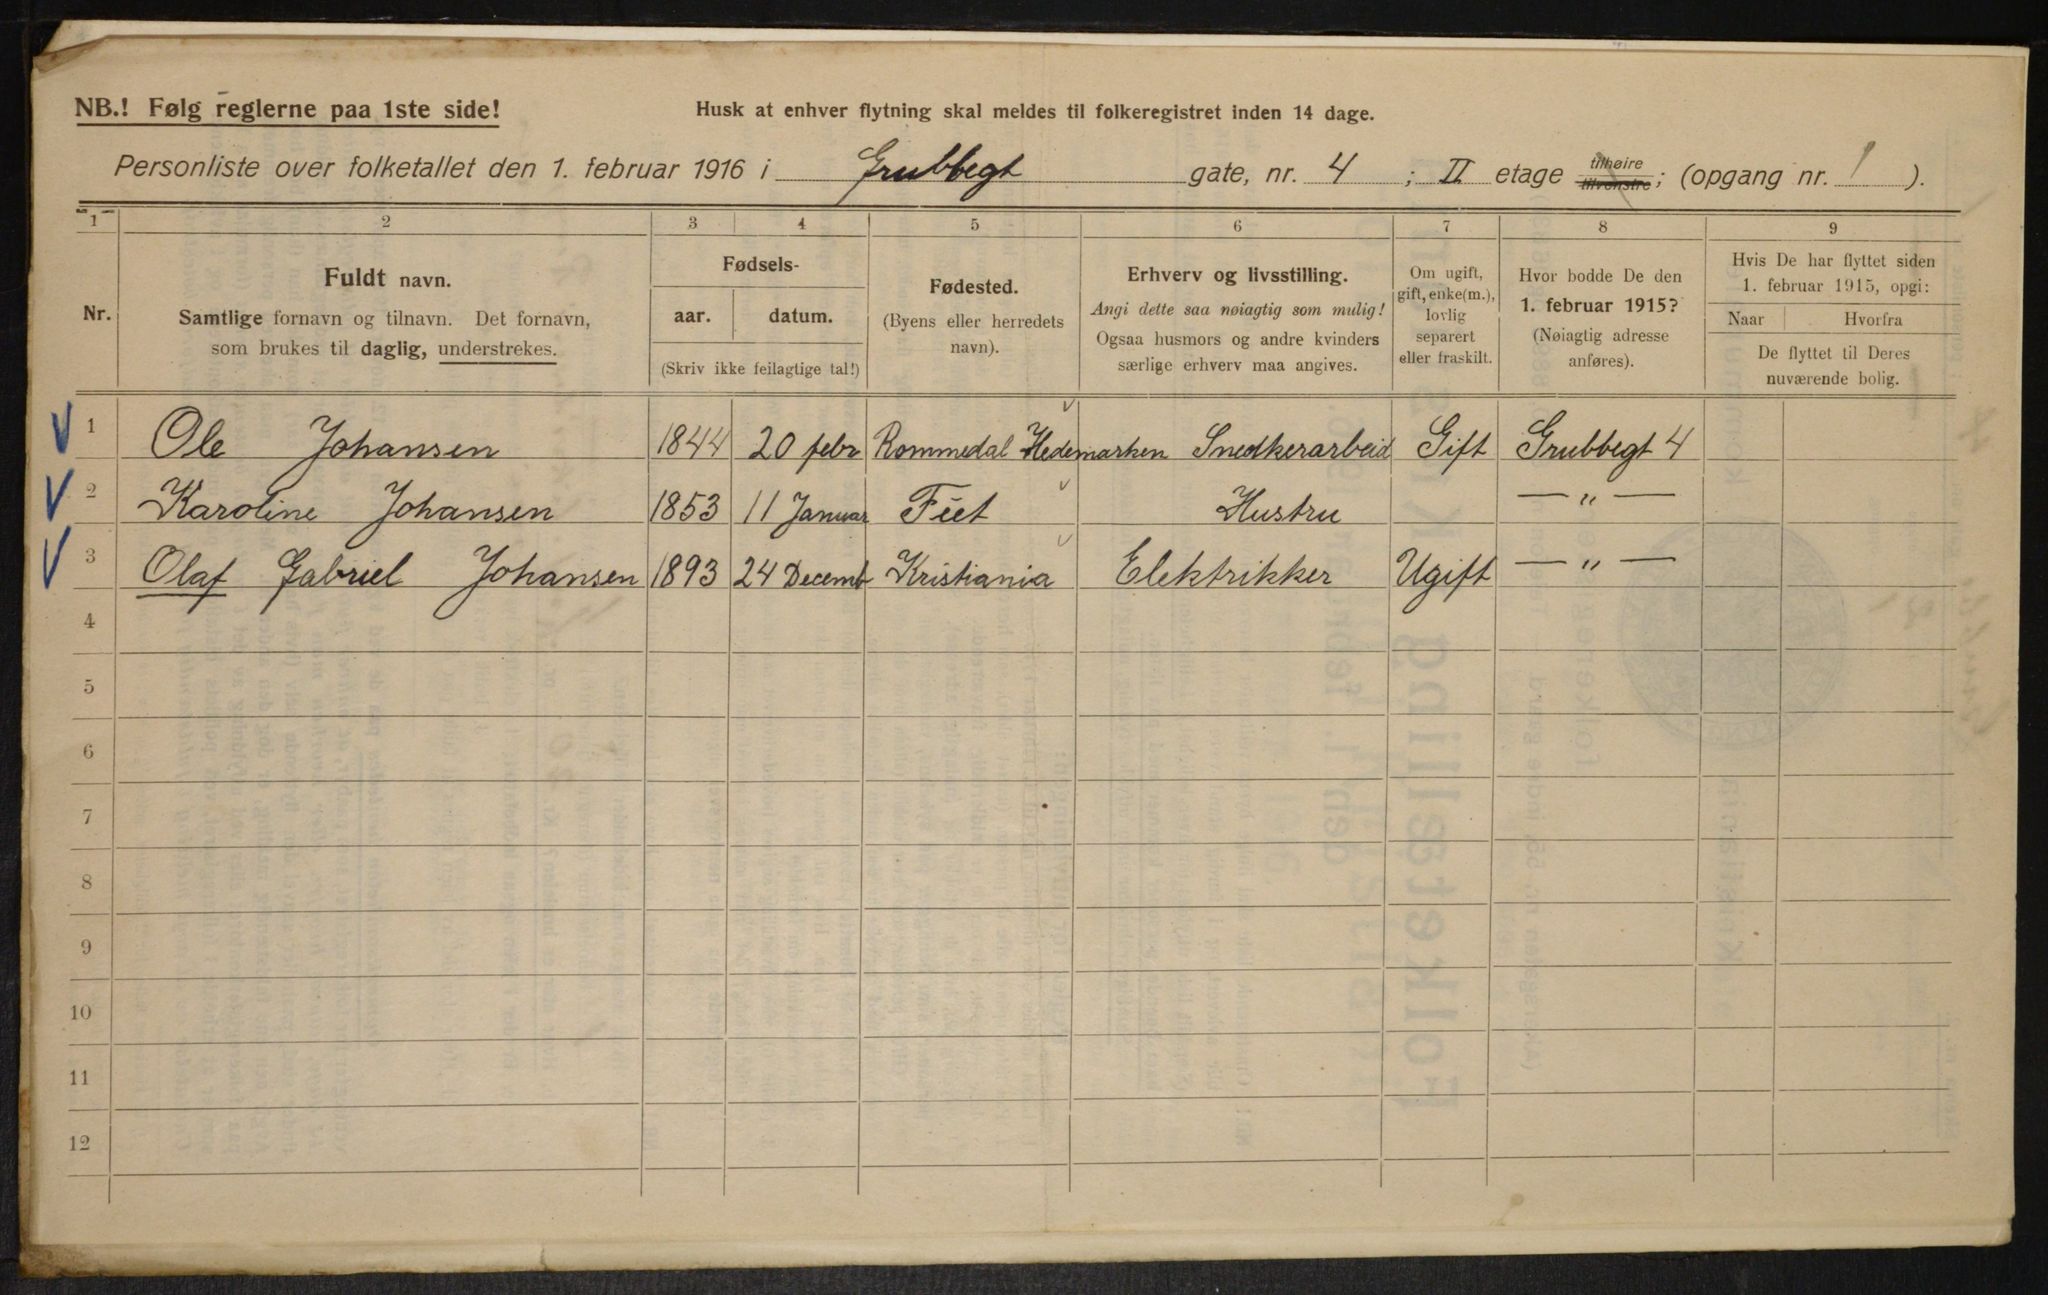 NB.! Følg reglerne paa 1ste side!
Husk at enhver flytning skal meldes til folkeregistret inden 14 dage.
Personliste over folketallet den 1. februar 1916 i Grubbegt gate, nr. 4 ; II etage tilhøire tilvenstre; (opgang nr. 1 ).
1 2 3 4 5 6 7 8 9
Nr.
Fuldt navn.
Samtlige fornavn og tilnavn. Det fornavn,
som brukes til daglig, understrekes.
Fødsels-
aar. datum.
(Skriv ikke feilagtige tal!)
Fødested.
(Byens eller herredets
navn).
Erhverv og livsstilling.
Angi dette saa nøiagtig som mulig!
Ogsaa husmors og andre kvinders
særlige erhverv maa angives.
Om ugift,
gift, enke(m.),
lovlig
separert
eller fraskilt.
Hvor bodde De den
1. februar 1915?
(Nøiagtig adresse
anføres).
Hvis De har flyttet siden
1. februar 1915, opgi:
Naar Hvorfra
De flyttet til Deres
nuværende bolig.
1 Ole Johansen 1844 20 febr Rommedal Hedemarken Snedkerarbeid Gift Grubbegt 4
2 Karoline Johansen 1853 11 Januar Féet Hustru — „ —
3 Olaf Gabriel Johansen 1893 24 Decemb Kristiania Elektrikker Ugift — „ —
4
5
6
7
8
9
10
11
12